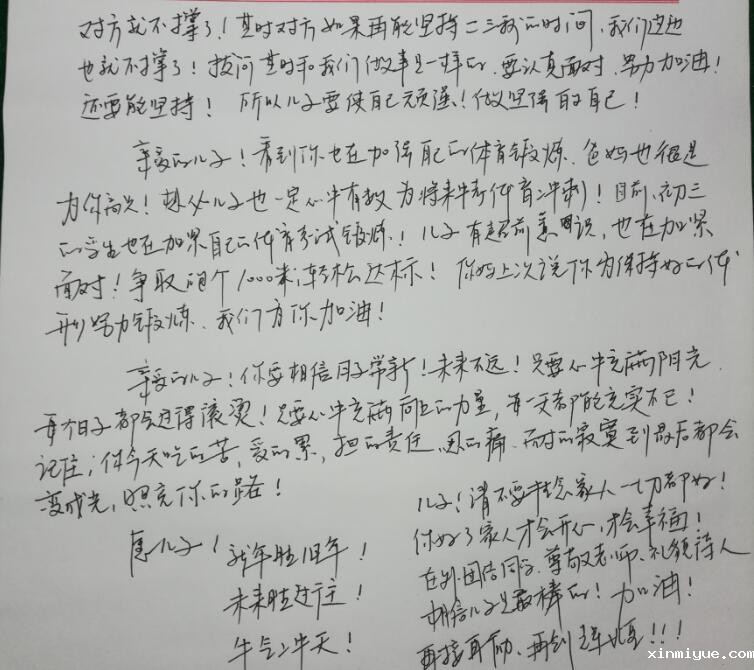 对方就不撑了！其时对方如果再能坚持二三秒的时间，我们这边
也就不撑了！拔河其时和我们做事是一样的，要认真面对，努力加油！
还要能坚持！所以儿子要使自己顽强！做坚强的自己！
亲爱的儿子！看到你也在加强自己的体育锻炼，爸妈也很是
为你高兴！想必儿子也一定心中有数为将来中考体育冲刺！目前，初三
的学生也在加紧自己的体育考试锻炼！儿子有超前意识，也在加紧
面对！争取的个1000米，轻松达标！你妈上次说你为保持好的体
形努力锻炼，我们为你加油！
亲爱的儿子！你要相信日子常新！未来不远！只要心中充满阳光，
每个日子都会过得滚烫！只要心中充满向上的力量，每一天都能充实不已！
记住；你今天吃的苦，受的累，担的责任，忍的痛，面对的寂寞到最后都会
变成光，照亮你的路！
愿儿子！
就年胜旧年！
未来胜过往！
牛气冲天！
儿子！请不要牵念家人一切都好！
你好了家人才会开心，才会幸福！
在外团结同学，尊敬老师，礼貌待人
相信儿子是最棒的！加油！
再接再厉，再创辉煌！！！
xinmiyue.com